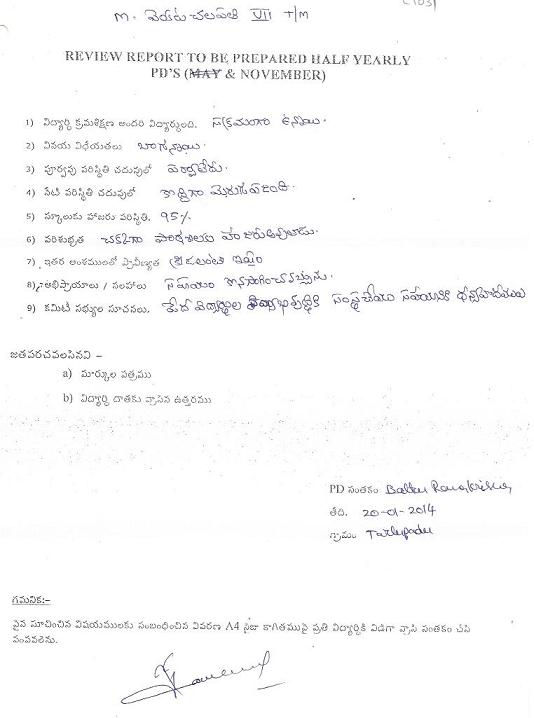 M. వెంకటాచలపతి VII T/M
REVIEW REPORT TO BE PREPARED HALF YEARLY
PD'S (MAY & NOVEMBER)
1) విద్యార్థి క్రమశిక్షణ అందరి విద్యార్థులంది. సక్రమంగా ఉన్నాయి.
2) వినయ విధేయతలు బాగున్నాయి.
3) పూర్వపు పరిస్థితి చదువులో పర్వాలేదు.
4) నేటి పరిస్థితి చదువులో కొద్దిగా మెరుగుపడింది
5) స్కూలుకు హాజరు పరిస్థితి. 95%
6) పరిశుభ్రత చక్కగా పాఠశాలకు హాజరు అవుతాడు.
7) ఇతర అంశములతో ప్రావీణ్యత క్రీడలంటే ఇష్టం
8) అభిప్రాయాలు / సలహాలు సహాయం కొనసాగించవచ్చును.
9) కమిటీ సభ్యుల సూచనలు. పేద విద్యార్థుల సంస్థ చేయు సహాయానికి ధన్యవాదములు
జతపరచవలసినవి –
a) మార్కుల పత్రము
b) విద్యార్థి దాతకు వ్రాసిన ఉత్తరము
PD సంతకం Balla Ramakrishna
తేది. 20-01-2014
గ్రామం Tarlupadu
గమనిక:–
పైన సూచించిన విషయములకు సంబంధించిన వివరణ A4 సైజు కాగితముపై ప్రతి విద్యార్థికి విడిగా వ్రాసి సంతకం చేసి
పంపవలెను.